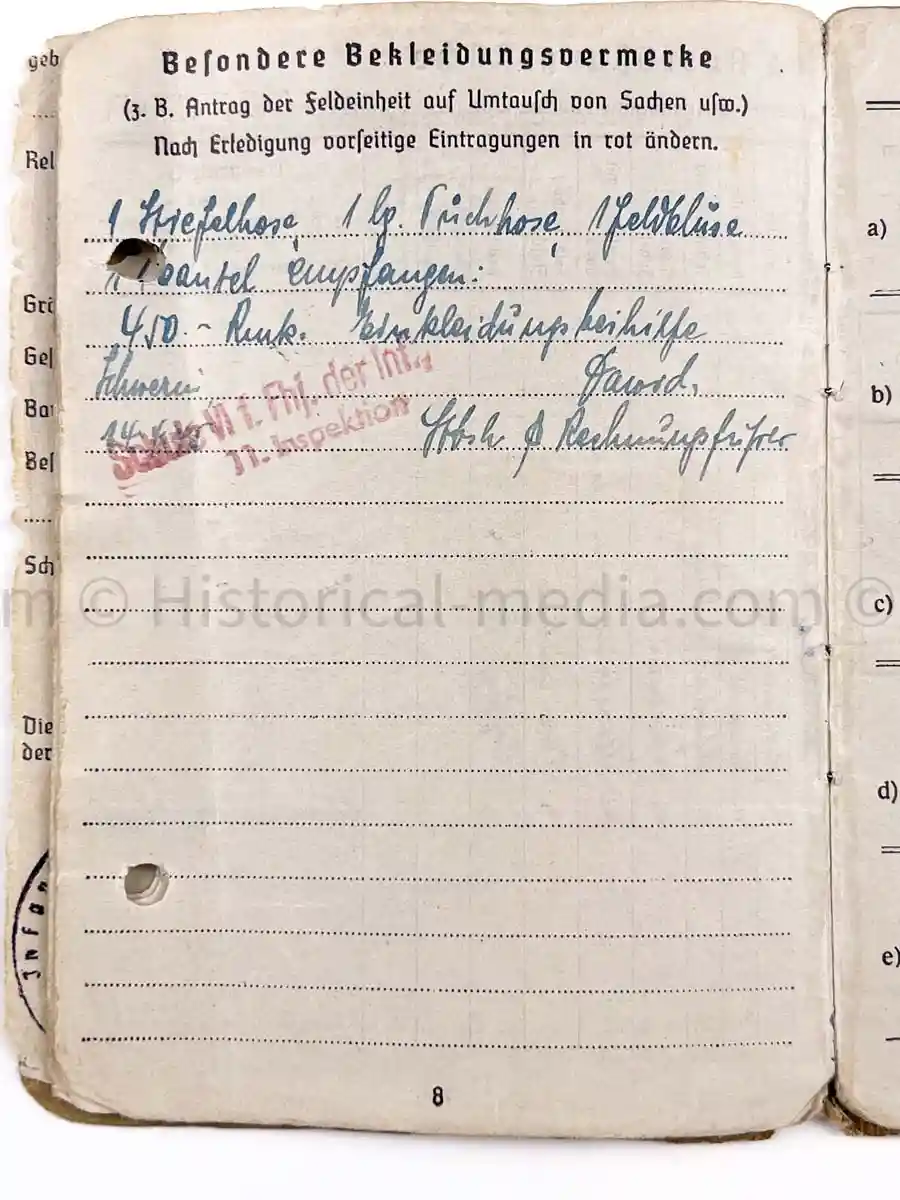 Besondere Bekleidungsvermerke
(z. B. Antrag der Feldeinheit auf Umtausch von Sachen usw.)
Nach Erledigung vorseitige Eintragungen in rot ändern.
1 Stiefelhose, 1 lg. Tuchhose, 1 Feldbluse
1 Mantel empfangen:
450.- Rmk. Einkleidungsbeihilfe
Schwerin
Schule VI f. Fhj. der Inf.,
11. Inspektion
Stbsw. u. Rechnungsführer
geb
Rel
Grö
Ges
Bar
Bes
Sch
Die
der
Infan
a)
b)
c)
d)
e)
m © Historical-media.com ©
8